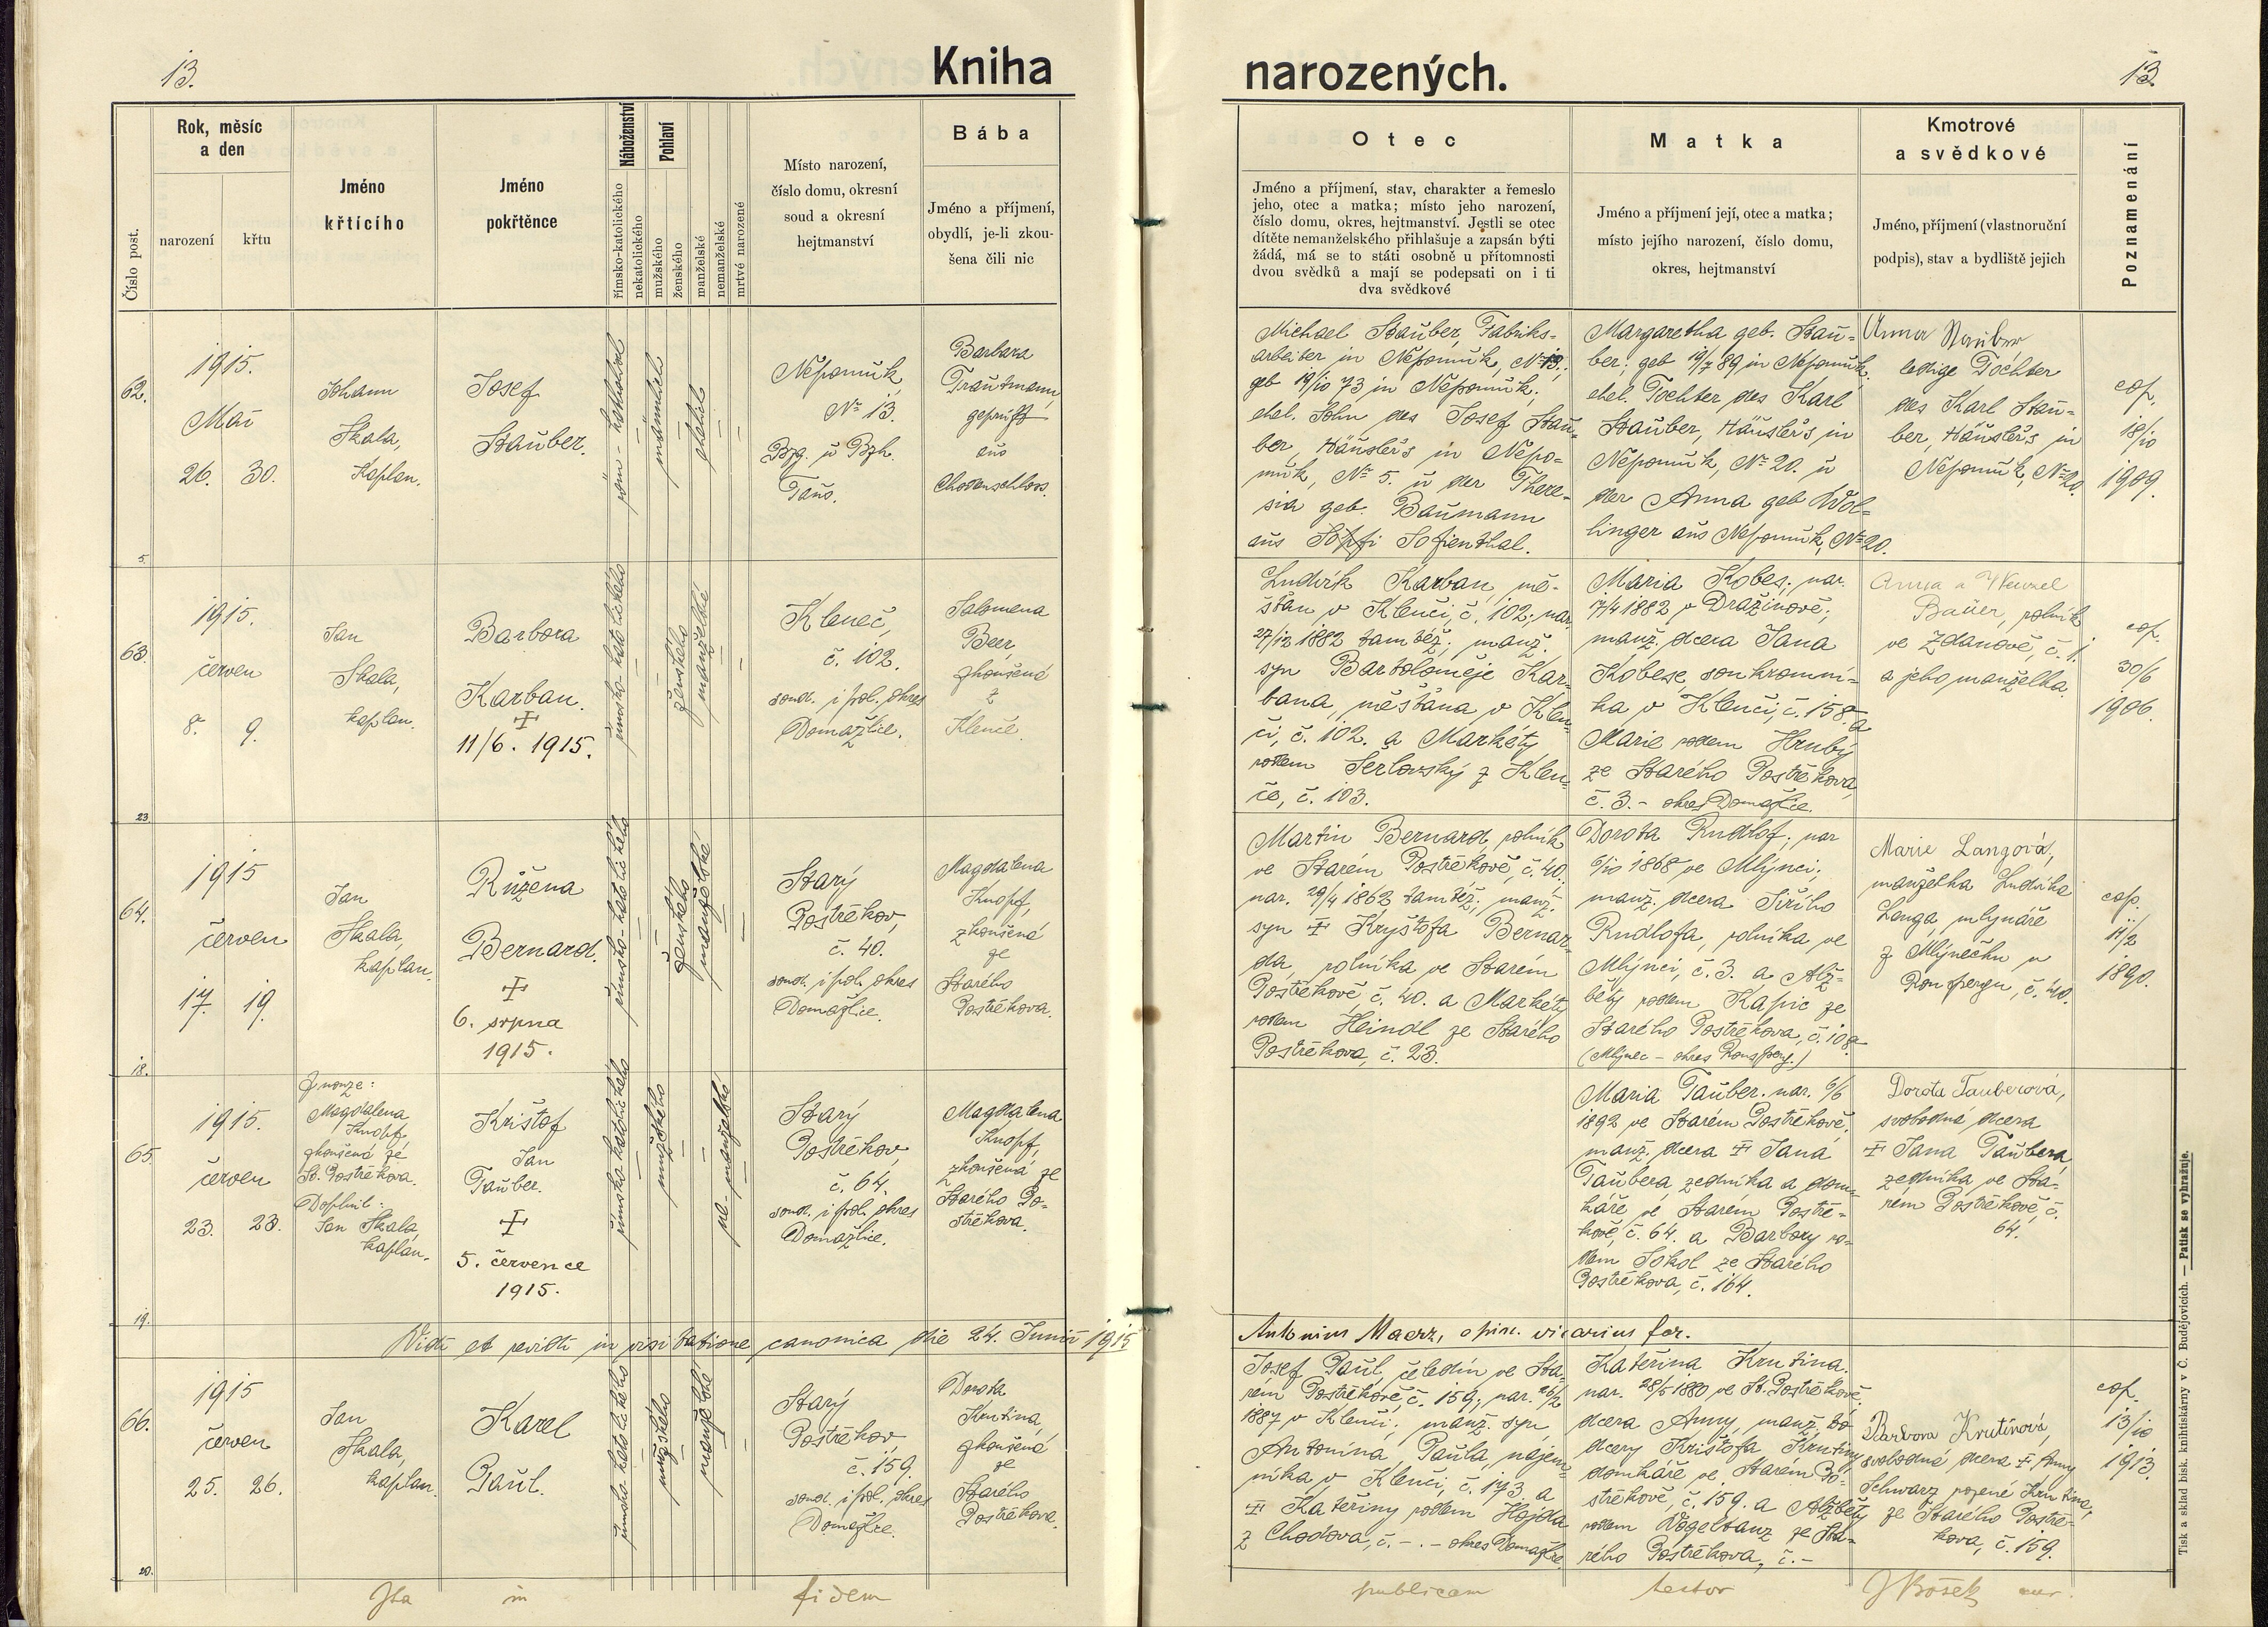 13.
Kniha
narozených.
13.
Číslo post.
Rok, měsíc
a den
narození
křtu
Jméno
křtícího
Jméno
pokřtěnce
Náboženství
římsko-katolického
nekatolického
Pohlaví
mužského
ženského
manželské
nemanželské
mrtvě narozené
Místo narození,
číslo domu, okresní
soud a okresní
hejtmanství
Bába
Jméno a příjmení,
obydlí, je-li zkou-
šena čili nic
Otec
Jméno a příjmení, stav, charakter a řemeslo
jeho, otec a matka; místo jeho narození,
číslo domu, okres, hejtmanství. Jestli se otec
dítěte nemanželského přihlašuje a zapsán býti
žádá, má se to státi osobně u přítomnosti
dvou svědků a mají se podepsati on i ti
dva svědkové
Matka
Jméno a příjmení její, otec a matka;
místo jejího narození, číslo domu,
okres, hejtmanství
Kmotrové
a svědkové
Jméno, příjmení (vlastnoruční
podpis), stav a bydliště jejich
Poznamenání
62.
1915.
Mai
26. 30.
Johann
Skala,
Kaplan.
Josef
Stauber.
röm-katholisch
männlich
ehelich
Nepomuk,
№ 13.
Bzg. u Bzh.
Taus.
Barbara
Trautmann,
geprüft
aus
Chodenschloss.
Michael Stauber, Fabriks-
arbeiter in Nepomuk, № 13.;
geb 19/10 73 in Nepomuk;
ehel. Sohn des Josef Stau-
ber, Häuslers in Nepo-
muk, № 5. u der There-
sia geb. Baumann
aus Sofienthal.
Margaretha geb. Stau-
ber; geb 19/7 89 in Nepomuk.
ehel. Tochter des Karl
Stauber, Häuslers in
Nepomuk, № 20. u
der Anna geb Wol-
linger aus Nepomuk, № 20.
Anna Stauber
ledige Tochter
des Karl Stau-
ber, Häuslers in
Nepomuk, № 20.
cop.
18/10
1909.
5.
63.
1915.
červen
8. 9.
Jan
Skala,
kaplan.
Barbora
Karban.
†
11/6. 1915.
římsko-katolického
ženského
manželské
Kleneč,
č. 102.
soud. i pol. okres
Domažlice.
Salomena
Beer,
zkoušená
z
Klenče.
Ludvík Karban, mě-
šťan v Klenči, č. 102; nar.
27/12 1882 tamtéž; manž.
syn Bartoloměje Kar-
bana, měšťana v Klen-
či, č. 102. a Markéty
rodem Šeřlovský z Klen-
če, č. 103.
Maria Kobes; nar.
7/4 1882 v Dražinově;
manž. dcera Jana
Kobese, soukromní-
ka v Klenči, č. 158. a
Marie rodem Hrubý
ze Starého Postřekova,
č. 3. - okres Domažlice.
Anna a Wenzel
Bauer, rolník
ve Ždanově, č. 1.
a jeho manželka.
cop.
30/6
1906.
23.
64.
1915
červen
17. 19.
Jan
Skala,
kaplan.
Růžena
Bernard.
†
6. srpna
1915.
římsko-katolického
ženského
manželské
Starý
Postřekov,
č. 40.
soud. i pol. okres
Domažlice.
Magdalena
Knopf,
zkoušená
ze
Starého
Postřekova.
Martin Bernard, rolník
ve Starém Postřekově, č. 40.;
nar. 29/4 1862 tamtéž; manž.
syn † Kryštofa Bernar-
da, rolníka ve Starém
Postřekově č. 40. a Markéty
rodem Heindl ze Starého
Postřekova, č. 23.
Dorota Rudlof; nar
6/10 1868 ve Mlýnci;
manž. dcera Jiřího
Rudlofa, rolníka ve
Mlýnci, č. 3. a Alž-
běty rodem Kapic ze
Starého Postřekova, č. 108
(Mlýnec - okres Ronsperg.)
Marie Langová,
manželka Ludvíka
Langa, mlynáře
z Mlýnečku u
Ronspergu, č. 40.
cop.
11/2
1890.
18.
65.
1915.
červen
23. 23.
Z nouze:
Magdalena
Knopf,
zkoušená ze
St. Postřekova.
Doplnil:
Jan Skala,
kaplan.
Krištof
Jan
Tauber.
†
5. července
1915.
římsko-katolického
mužského
ne-manželské
Starý
Postřekov,
č. 64.
soud. i pol. okres
Domažlice.
Magdalena
Knopf,
zkoušená ze
Starého Po-
střekova.
Maria Tauber. nar. 6/6
1892 ve Starém Postřekově,
manž. dcera † Jana
Taubera, zedníka a dom-
káře ve Starém Postře-
kově, č. 64. a Barbory ro-
dem Sokol ze Starého
Postřekova, č. 164.
Dorota Tauberová,
svobodná dcera
† Jana Taubera,
zedníka ve Sta-
rém Postřekově, č.
64.
19.
Vidi et revidi in visitatione canonica die 24. Junii 1915
Antonius Maerz, vicarius for.
66.
1915
červen
25. 26.
Jan
Skala,
kaplan.
Karel
Paul.
římsko-katolického
mužského
manželské
Starý
Postřekov,
č. 159.
soud. i pol. okres
Domažlice.
Dorota
Krutina,
zkoušená
ze
Starého
Postřekova.
Josef Paul, čeledín ve Sta-
rém Postřekově, č. 159; nar. 26/2
1887 v Klenči; manž. syn
Antonína Paula, nájem-
níka v Klenči, č. 173. a
† Kateřiny rodem Hojda
z Chodova, č. -.- okres Domažlice.
Kateřina Krutina.
nar. 28/5 1880 ve St. Postřekově.
dcera Anny, manž.
dcery Krištofa Krutiny,
domkáře ve Starém Po-
střekově, č. 159. a Alžběty
rodem Vogeltanz ze Sta-
rého Postřekova, č. -
Barbora Krutinová,
svobodná dcera † Anny
Schwarz rozené Krutina,
ze Starého Postře-
kova, č. 159.
cop.
13/10
1913.
20.
Ita in fidem publicam testor
Tisk a sklad bisk. knihtiskárny v Č. Budějovicích. — Patisk se vyhražuje.